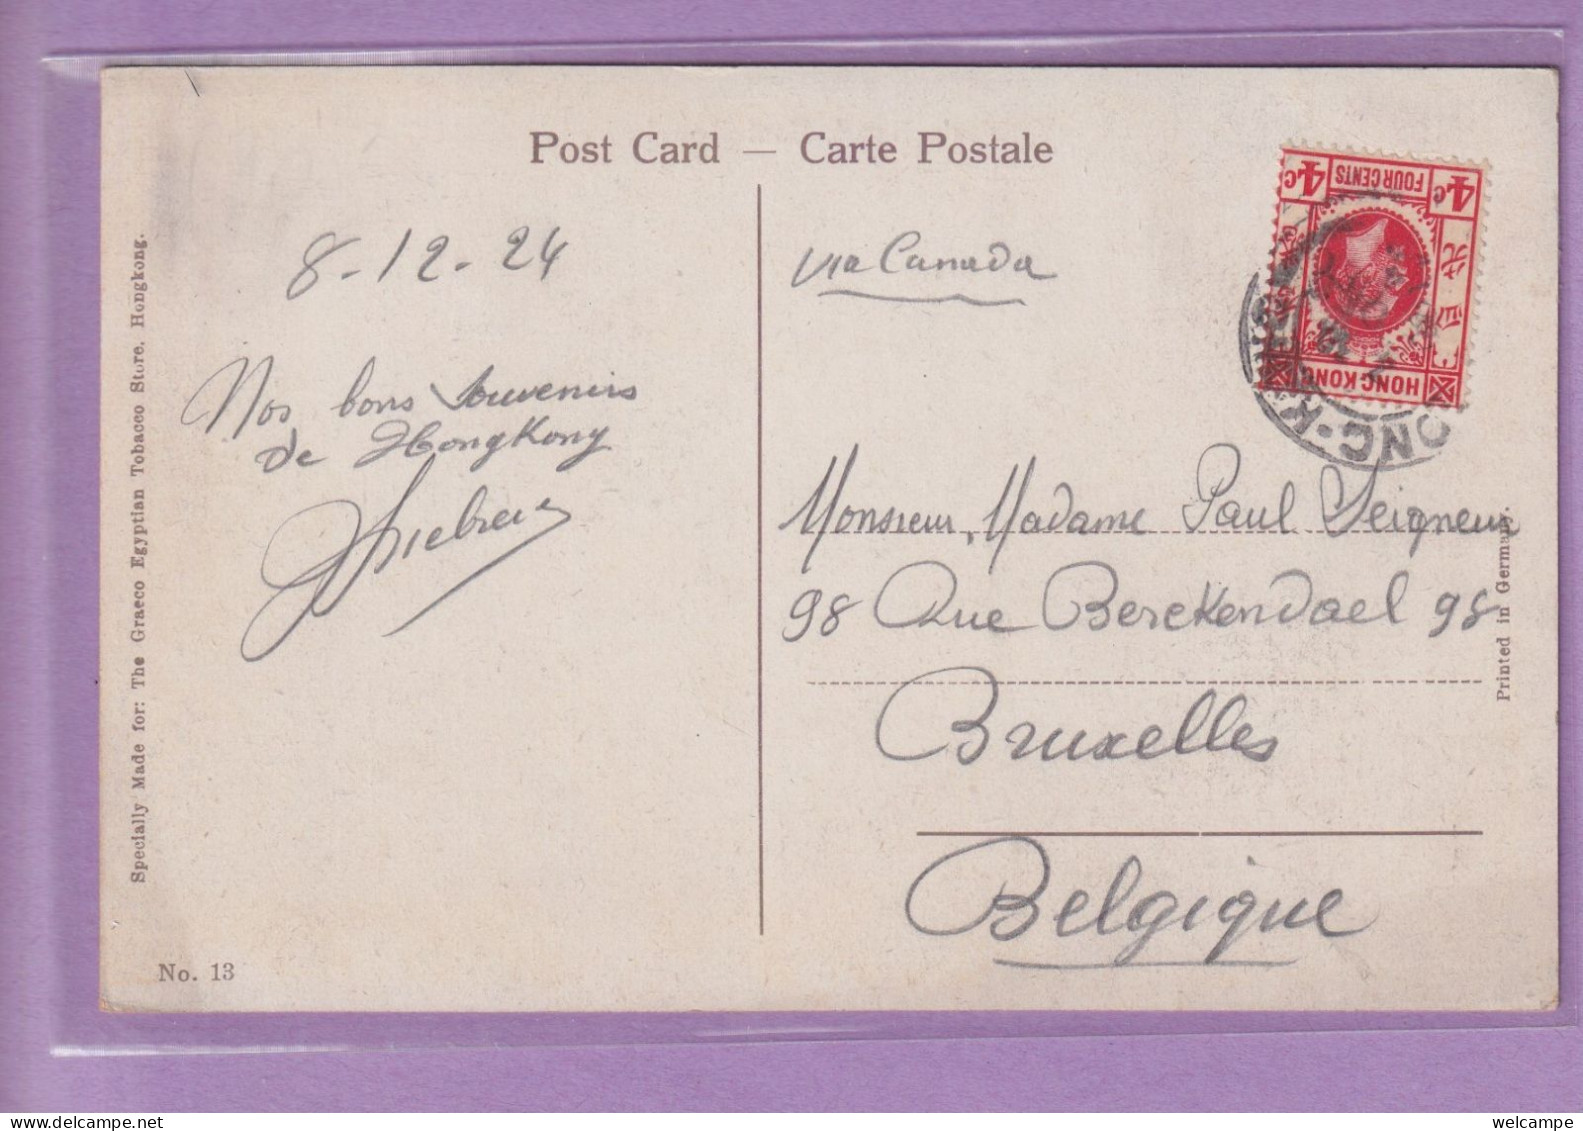 Post Card — Carte Postale
8-12-24
Nos bons Souvenirs
de HongKong
via Canada
Monsieur, Madame Paul Seigneur
98 Rue Berckendael 98
Bruxelles
Belgique
Specially Made for: The Graeco Egyptian Tobacco Store, Hongkong.
No. 13
Printed in Germany.
4c 4c
FOUR CENTS
HONG KONG
welcampe